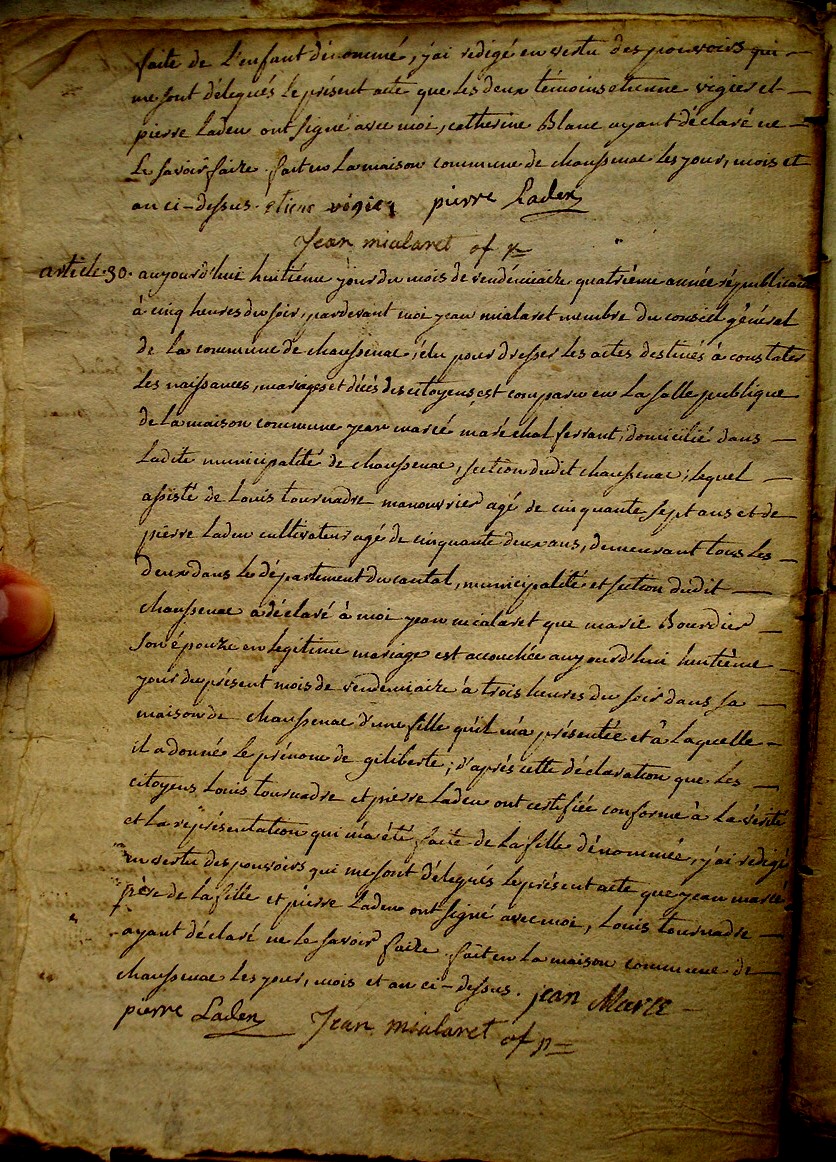 faite de l'enfant dénommé, j'ai redigé en vertu des pouvoirs qui
me sont délegués le présent acte que les deux témoins etienne vigier et
pierre Laden ont signé avec moi, catherine Blanc ayant déclaré ne
le savoir faire. fait en la maison commune de chaussenac les jour, mois et
an ci-dessus. etiene vigier pierre Laden
Jean mialaret of p
article 30. aujourd'hui huitiéme jour du mois de vendémiaire quatriéme année républicaine
à cinq heures du soir, pardevant moi jean mialaret membre du conseil général
de la commune de chaussenac, élu pour dresser les actes destinés à constater
les naissances, mariages et décés des citoyens est comparu en la salle publique
de la maison commune jean marcé maréchal ferrant, domicilié dans
ladite municipalité de chaussenac, section dudit chaussenac; lequel
assisté de Louis tournadre manouvrier agé de cinquante sept ans et de
pierre Laden cultivateur agé de cinquante deux ans, demeurant tous les
deux dans le département du cantal, municipalité et section dudit
chaussenac a déclaré à moi jean mialaret que marie Bourdier
son épouze en legitime mariage est accouchée aujourd'hui huitiéme
jour du présent mois de vendemiaire à trois heures du soir dans sa
maison de chaussenac d'une fille qu'il m'a présentée et à laquelle
il a donné le prénom de giliberte; d'aprés cette déclaration que les
citoyens Louis tournadre et pierre Laden ont certifiée conforme à la vérité
et la représentation qui m'a été faite de la fille dénommée, j'ai redigé
en vertu des pouvoirs qui me sont délegués le présent acte que jean marcé
pére de la fille et pierre Laden ont signé avec moi, Louis tournadre
ayant déclaré ne le savoir faire. fait en la maison commune de
chaussenac les jour, mois et an ci-dessus. jean Marce
pierre Laden Jean mialaret of p